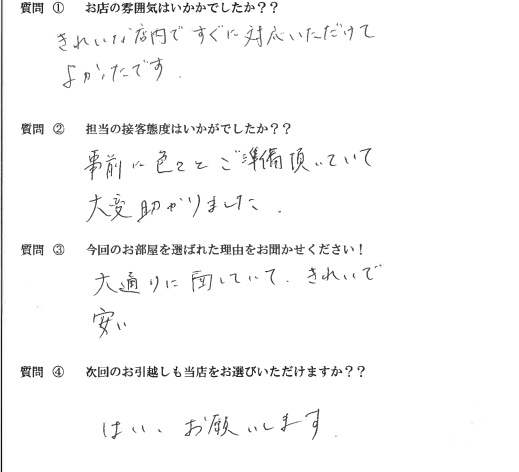 質問 ① お店の雰囲気はいかかでしたか??
きれいな店内ですぐに対応いただけて
よかったです.
質問 ② 担当の接客態度はいかがでしたか??
事前に色々とご準備頂いていて
大変助かりました.
質問 ③ 今回のお部屋を選ばれた理由をお聞かせください!
大通りに面していて、きれいで
安い
質問 ④ 次回のお引越しも当店をお選びいただけますか??
はい、お願いします.